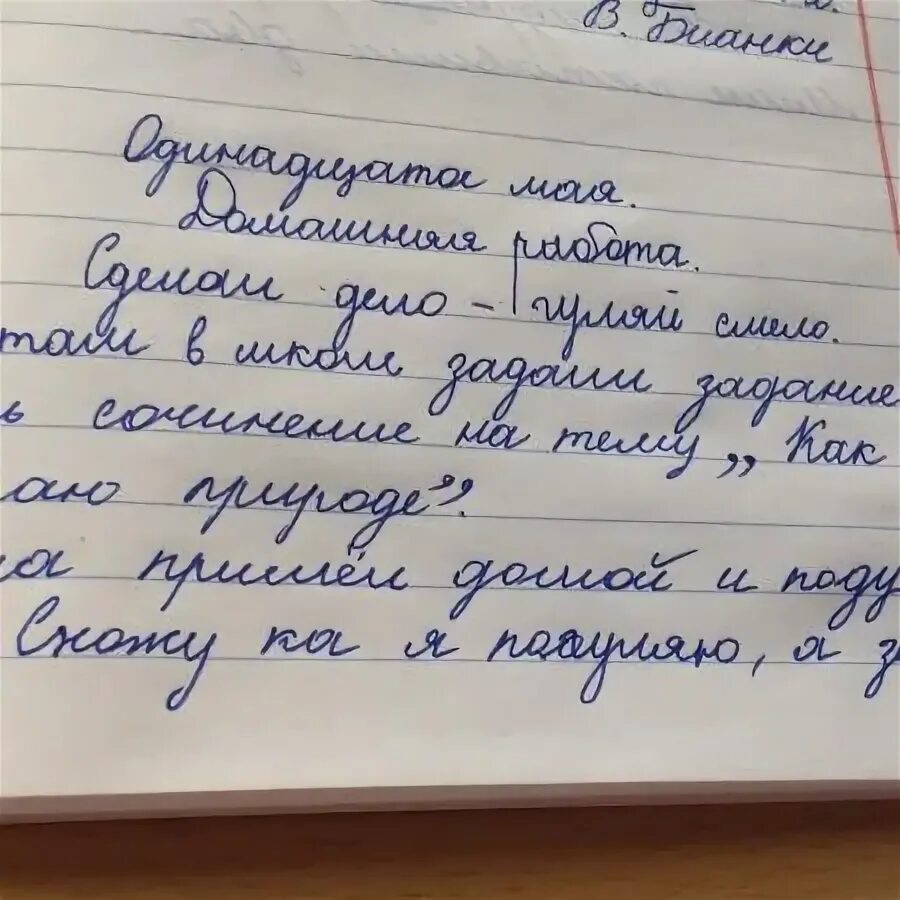 В. Бианки
Одинадцатое мая.
Домашняя работа.
Сделал дело - гуляй смело.
там в школе задали задание
ь сочинение на тему „Как
аю природе”.
а пришёл домой и поду
Схожу ка я погуляю, а з